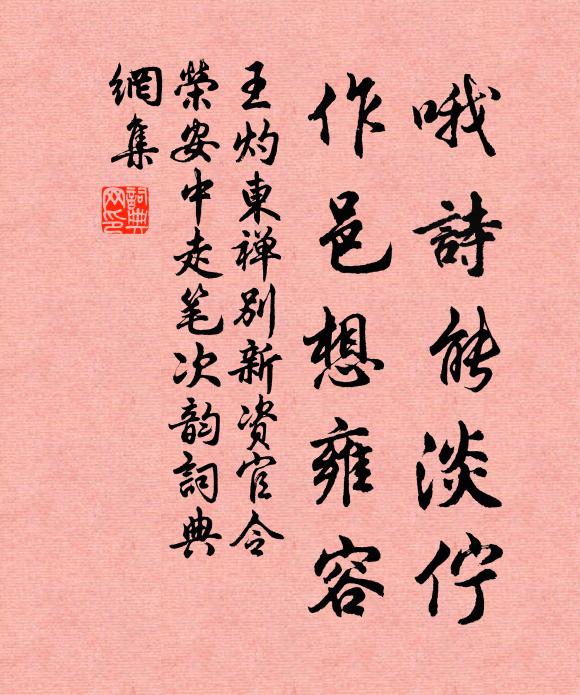 哦詩能淡佇
作邑想雍容
王灼東禅别新资官令
榮安中走笔次韵詞典
網集
詞典网印